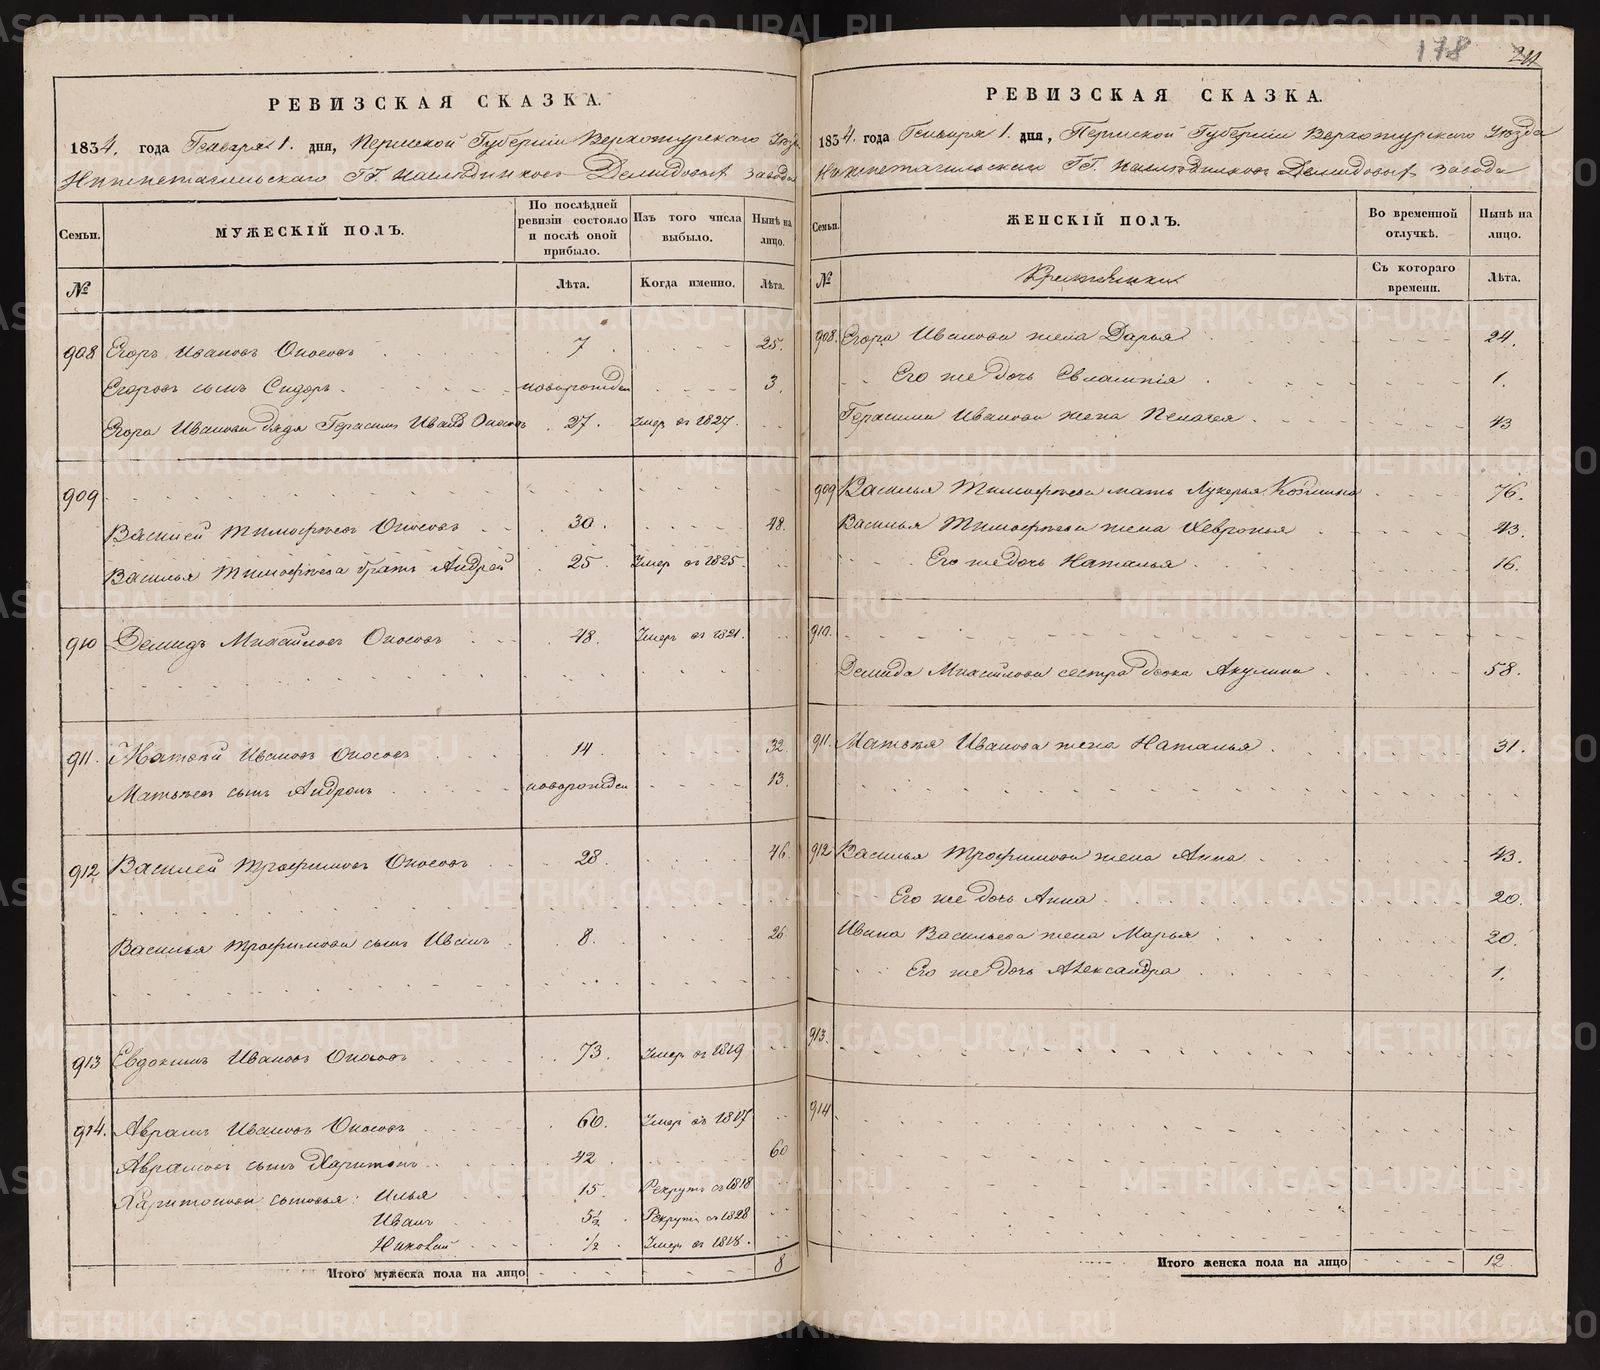 178
211
РЕВИЗСКАЯ СКАЗКА.
1834. года Генваря 1. дня, Пермской Губернии Верхотурскаго Уезда
Нижнетагильскаго ГГ. Наследников Демидовых завода
Семьи.
МУЖЕСКІЙ ПОЛЪ.
По послѣдней ревизіи состояло и послѣ оной прибыло.
Изъ того числа выбыло.
Нынѣ на лицо.
№
Лѣта.
Когда именно.
Лѣта.
908 Егоръ Ивановъ Оносовъ 7 25.
Егоровъ сынъ Сидоръ. новорожден 3.
Егора Иванова дядя Герасимъ Иванов Оносовъ 27. Умер в 1827.
909
Василей Тимофѣевъ Оносовъ 30. 48.
Василья Тимофѣева братъ Андрей 25. Умер в 1825.
910 Демидъ Михайловъ Оносовъ 48. Умеръ в 1821.
911. Матвей Ивановъ Оносовъ 14 32.
Матвѣев сынъ Андрон новорожден 13.
912 Василей Трофимовъ Оносовъ 28. 46.
Василья Трофимова сынъ Иванъ 8. 26
913 Евдокимъ Ивановъ Оносовъ 73. Умер в 1819
914. Аврамъ Ивановъ Оносовъ 60. Умер въ 1817
Аврамов сынъ Харитонъ 42 60
Харитонова сыновья: Илья 15. Рекрутъ с 1818
Иванъ 5½ Рекрутъ с 1828
Николай ½ Умер в 1818.
Итого мужеска пола на лицо 8
РЕВИЗСКАЯ СКАЗКА.
1834. года Генваря 1. дня, Пермской Губернии Верхотурскаго Уезда
Нижнетагильскаго ГГ. Наследников Демидовых завода
Семьи.
ЖЕНСКІЙ ПОЛЪ.
Во временной отлучкѣ.
Нынѣ на лицо.
№
Съ котораго времени.
Лѣта.
908. Егора Иванова жена Дарья 24.
Его же дочь Евлампія 1.
Герасима Иванова жена Пелагея 43
909 Василья Тимофѣева мать Лукерья 76.
Василья Тимофѣева жена Февронья 43.
Его же дочь Наталья 16.
910.
Демида Михайлова сестра девка Акулина 58.
911. Матвѣя Иванова жена Наталья 31.
912 Василья Трофимова жена Анна 43.
Его же дочь Анна 20.
Ивана Васильева жена Марья 20.
Его же дочь Александра 1.
913.
914
Итого женска пола на лицо 12
METRIKI.GASO-URAL.RU